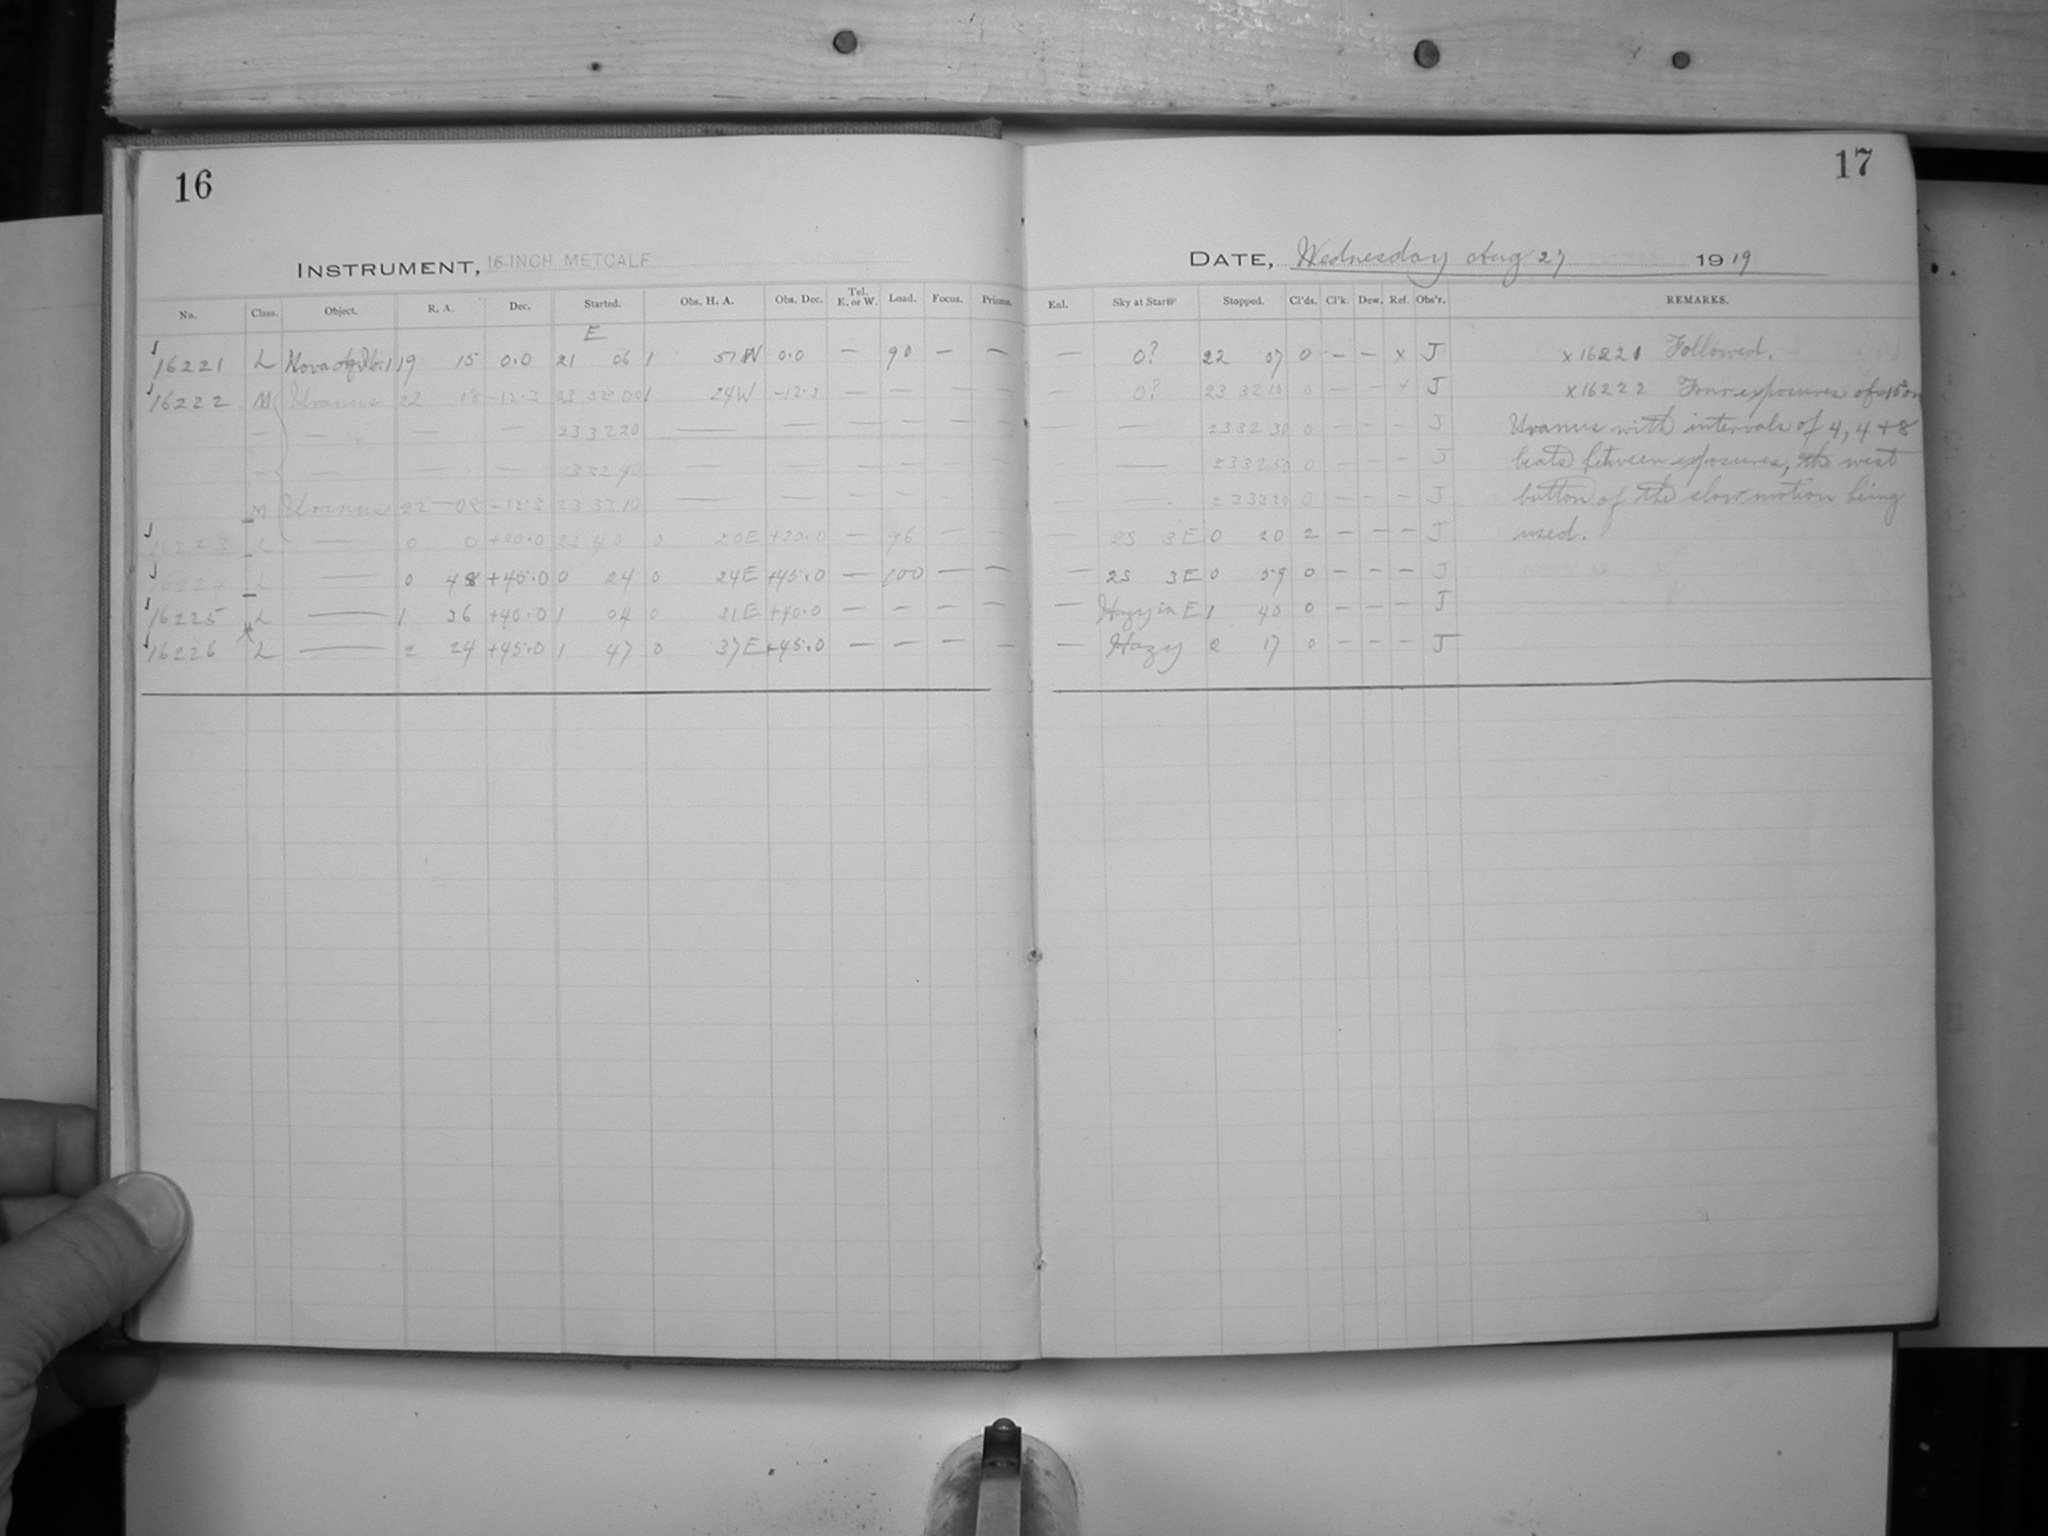 16
17
INSTRUMENT, 16-INCH METCALF
DATE, Wednesday Aug 27 1919
No. Class. Object. R. A. Dec. Started. Obs. H. A. Obs. Dec. Tel. E. or W. Load. Focus. Prisms. Enl. Sky at Start Stopped. Cl'ds. Cl'k. Dew. Ref. Obs'r. REMARKS.
E
16221 L Nova 19 15 0.0 21 06 1 51W 0.0 — 90 — — — 0? 22 07 0 — — x J x16221 Followed.
16222 M Uranus 22 08 -12.3 23 32 00 1 24W -12.3 — — — — — 0? 23 32 10 0 — — + J x16222 Four exposures of 15s on
— — — — 23 32 20 — — — — — — — — 23 32 30 0 — — — J Uranus with intervals of 4, 4 + 8
— — — — 23 32 40 — — — — — — — — 23 32 50 0 — — — J beats between exposures, the west
M Uranus 22 08 -12.3 23 33 10 — — — — — — — — 23 33 20 0 — — — J button of the slow motion being
16223 L — 0 0 +20.0 23 40 0 20E +20.0 — 96 — — — 2S 3E 0 20 2 — — — J used.
16224 L — 0 48 +45.0 0 24 0 24E +45.0 — 100 — — — 2S 3E 0 59 0 — — — J
16225 L — 1 36 +40.0 1 04 0 31E +40.0 — — — — — Hazy in E 1 40 0 — — — J
16226 L — 2 24 +45.0 1 47 0 37E +45.0 — — — — — Hazy 2 17 0 — — — J